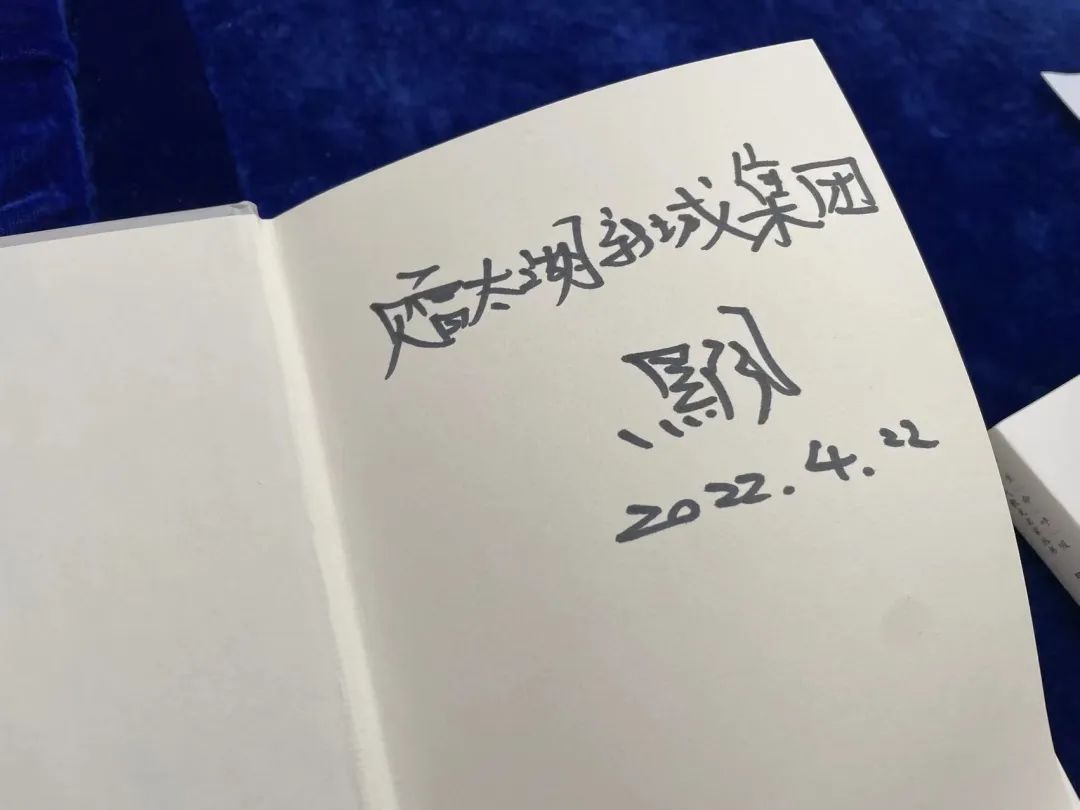 赠太湖新城集团
2022.4.22